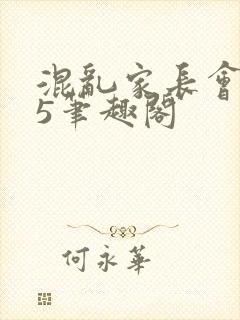 混亂家長會
5筆趣閣
何永華